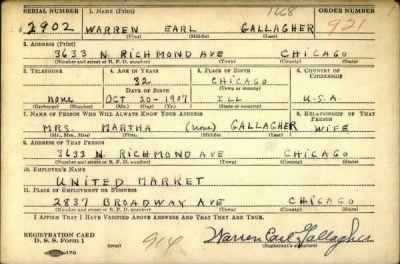 SERIAL NUMBER 1. NAME (Print) 1668 ORDER NUMBER
2902 WARREN EARL GALLAGHER 921
(First) (Middle) (Last)
2. ADDRESS (Print)
3633 N. RICHMOND AVE CHICAGO
(Number and street or R. F. D. number) (Town) (County) (State)
3. TELEPHONE 4. AGE IN YEARS 5. PLACE OF BIRTH 6. COUNTRY OF CITIZENSHIP
32 CHICAGO
DATE OF BIRTH (Town or county)
none OCT 20-1907 ILL U.S.A
(Exchange) (Number) (Mo.) (Day) (Yr.) (State or country)
7. NAME OF PERSON WHO WILL ALWAYS KNOW YOUR ADDRESS 8. RELATIONSHIP OF THAT PERSON
MRS. MARTHA (none) GALLAGHER WIFE
(Mr., Mrs., Miss) (First) (Middle) (Last)
9. ADDRESS OF THAT PERSON
3633 N. RICHMOND AVE CHICAGO
(Number and street or R. F. D. number) (Town) (County) (State)
10. EMPLOYER'S NAME
UNITED MARKET
11. PLACE OF EMPLOYMENT OR BUSINESS
2837 BROADWAY AVE CHICAGO
(Number and street or R. F. D. number) (Town) (County) (State)
I AFFIRM THAT I HAVE VERIFIED ABOVE ANSWERS AND THAT THEY ARE TRUE.
REGISTRATION CARD
D. S. S. Form 1 914 Warren Earl Gallagher
(Registrant's signature)